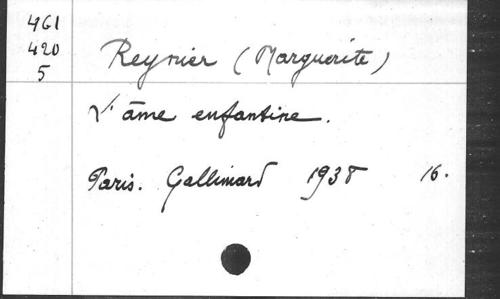 461
420
5
Reynier (Marguerite)
L'âme enfantine.
Paris. Gallimard 1938 16.